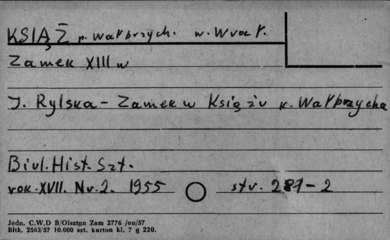 KSIĄŻ p. Wałbrzych. w. Wrocł.
Zamek XIII w
J. Rylska - Zamek w Książu k. Wałbrzycha
Biul. Hist. Szt.
rok. XVII. Nr. 2. 1955 str. 281-2
Jedn. C.W.D B/Olsztyn Zam 2776 /on/57
Bltk. 2563/57 10.000 szt. karton kl. 7 g 220.